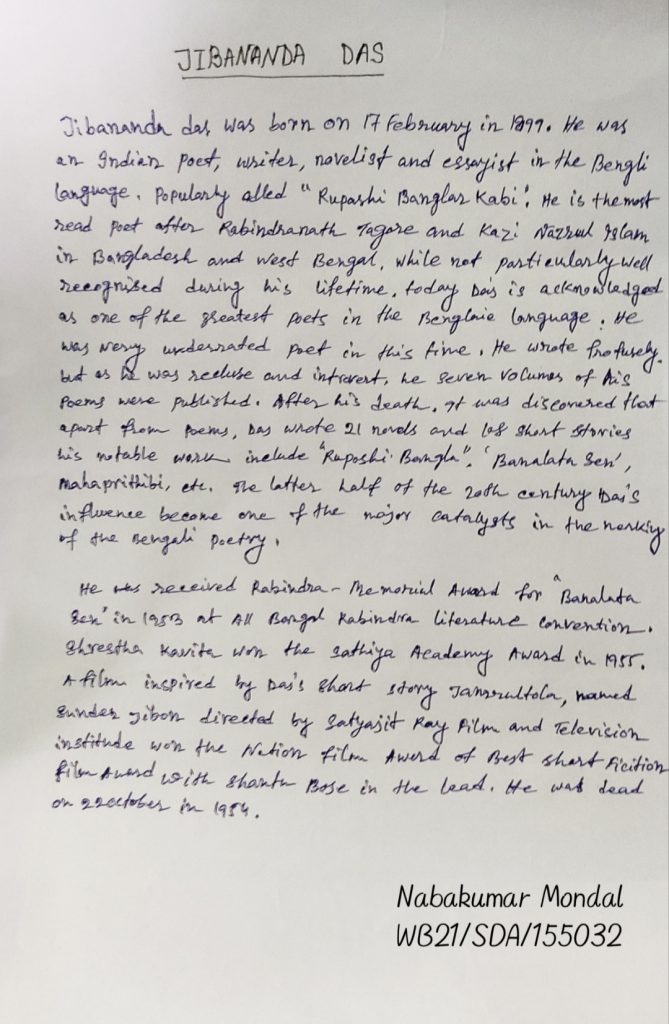 JIBANANDA DAS
Jibananda das was born on 17 February in 1899. He was
an Indian Poet, writer, novelist and essayist in the Bengli
language. Popularly alled "Rupashi Banglar Kabi". He is the most
read poet after Rabindranath Tagore and Kazi Nazrul Islam
in Bangladesh and West Bengal, While not particularly well
recognised during his lifetime, today Das is acknowladged
as one of the greatest poets in the language. He
was very underrated poet in this time. He wrote profusely,
but as he was recluse and introvert, he seven volumes of his
poems were published. After his death, It was discovered that
apart from poems, Das wrote 21 novels and 108 short stories
his notable work include "Ruposhi Bangla", 'Banalata Sen',
Mahaprithibi, etc. The latter half of the 20th century Das's
influence become one of the major catalysts in the
of the Bengali Poetry.
He was received Rabindra - Memorial Award for "Banalata
Sen" in 1953 at All Bangal Rabindra literature convention.
Shrestha Kavita won the Sathiya Academy Award in 1955.
A film inspired by Das's short story named
Sunder Jibon directed by Satyajit Ray Film and Television
institude won the Nation Film Award of Best short Ficition
film Award with Shantu Bose in the lead. He was dead
on 22 october in 1954.
Nabakumar Mondal
WB21/SDA/155032